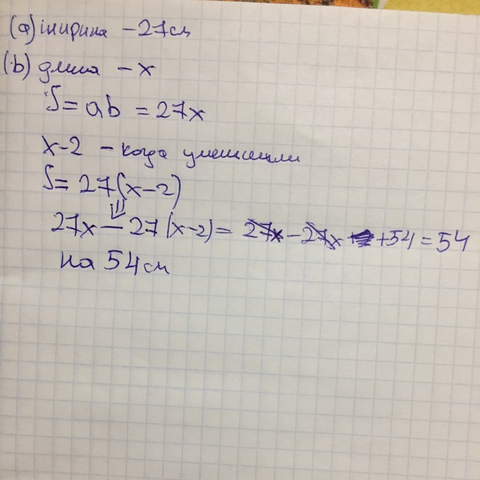 (a) ширина - 27см
(b) длина - x
S = ab = 27x
x-2 - когда уменшили
S = 27(x-2)
⇓
27x - 27(x-2) = 27x - 27x + 54 = 54
на 54 см